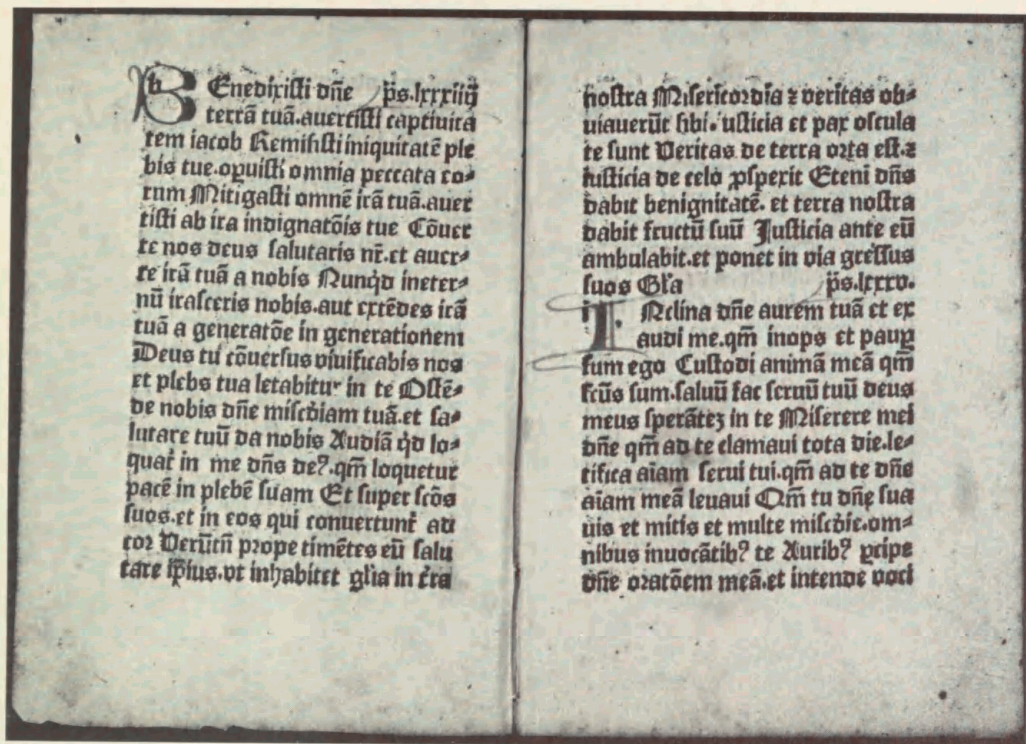 BEnedixisti dñe ps̃.lxxxiiij
terrã tuã.auertisti captiuita
tem iacob Remisisti iniquitatẽ ple
bis tue.opuisti omnia peccata eo⸗
rum Mitigasti omnẽ irã tuã.auer
tisti ab ira indignatõis tue Cõuer
te nos deus salutaris nr̃.et auer⸗
te irã tuã a nobis Nunq̃d ineter⸗
nũ irasceris nobis.aut extẽdes irã
tuã a generatõe in generationem
Deus tu cõuersus viuificabis nos
et plebs tua letabitur in te Ostẽ⸗
de nobis dñe miscd̃iam tuã.et sa⸗
lutare tuũ da nobis Audiã q̃d lo⸗
quat̃ in me dñs deꝰ.qm̃ loquetur
pacẽ in plebẽ suam Et super scõs
suos.et in eos qui conuertunt̃ ad
cor Verũtñ prope timẽtes eũ salu
tare ip̃ius.vt inhabitet gl̃ia in t̃ra
nostra Misericordia ⁊ veritas ob⸗
uiauerũt sibi.iusticia et pax oscula
te sunt Veritas de terra orta est.⁊
iusticia de celo ꝓspexit Eteni dñs
dabit benignitatẽ. et terra nostra
dabit fructũ suũ Justicia ante eũ
ambulabit.et ponet in via gressus
suos Gl̃a ps̃.lxxxv.
INclina dñe aurem tuã et ex
audi me.qm̃ inops et pauꝑ
sum ego Custodi animã meã qm̃
sc̃us sum.saluũ fac seruũ tuũ deus
meus sperãtez in te Miserere mei
dñe qm̃ ad te clamaui tota die.le⸗
tifica aĩam serui tui.qm̃ ad te dñe
aĩam meã leuaui Qm̃ tu dñe sua
uis et mitis et multe miscd̃ie.om⸗
nibus inuocãtibꝰ te Auribꝰ ꝑcipe
dñe oratõem meã.et intende voci